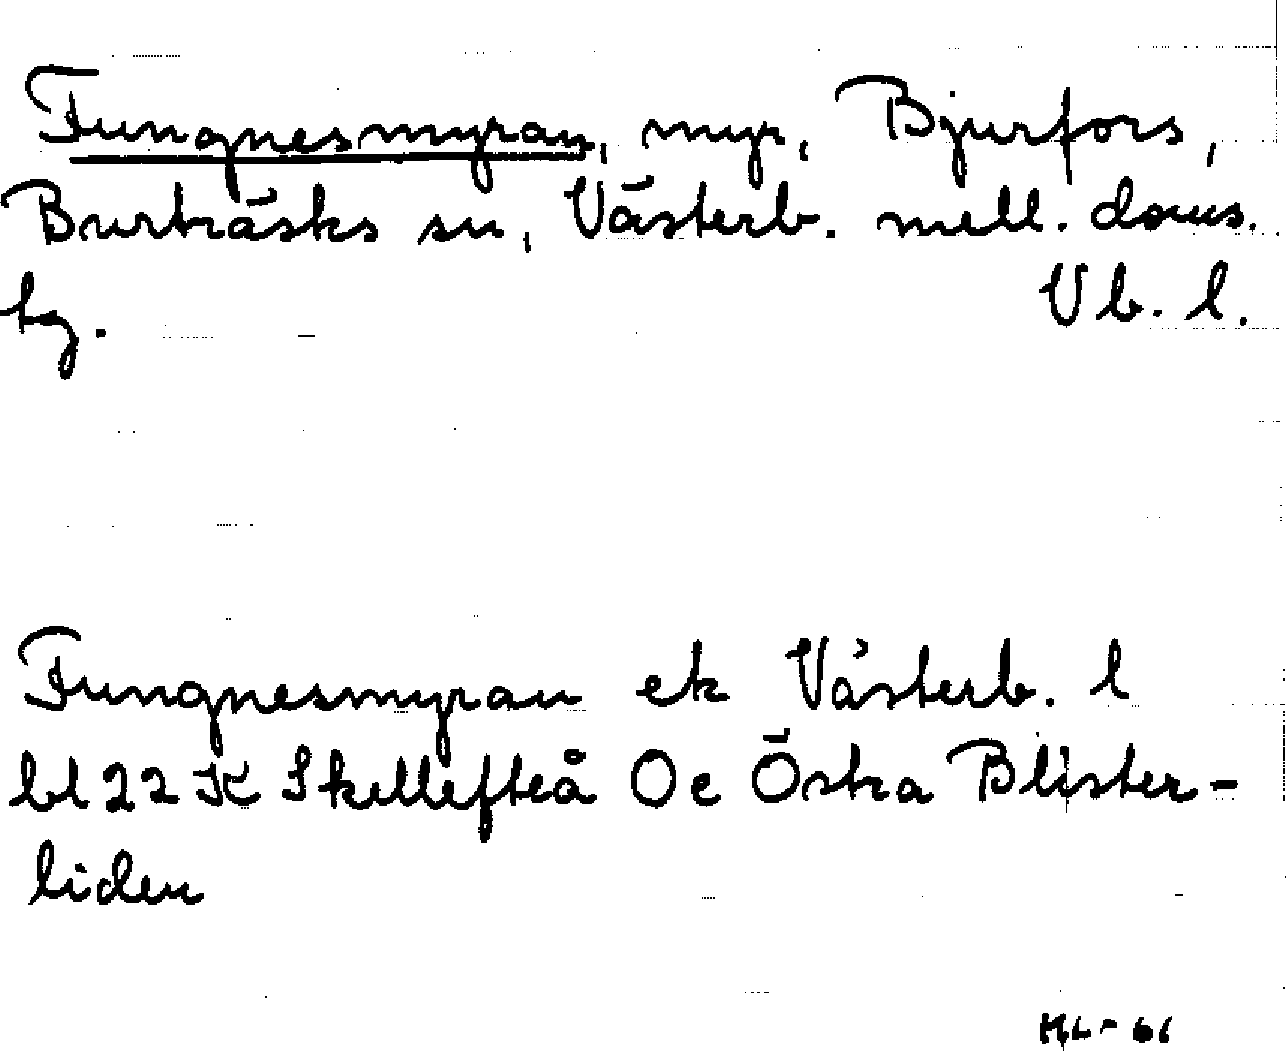 Tungnesmyran, myr, Bjurfors,
Burträsks sn, Västerb. mell. doms.
hg. Vb. l.
Tungnesmyran ek Västerb. l
bl 22 K Skellefteå Oe Östra Blister-
liden